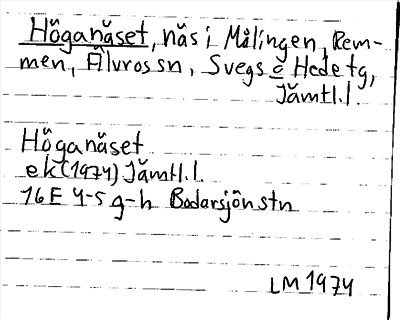 Höganäset, näs i Målingen, Rem-
men, Älvros sn, Svegs o Hede tg,
Jämtl.l.
Höganäset
ek (1974) Jämtl.l.
16E 4-5 g-h Bodarsjön stn
LM 1974